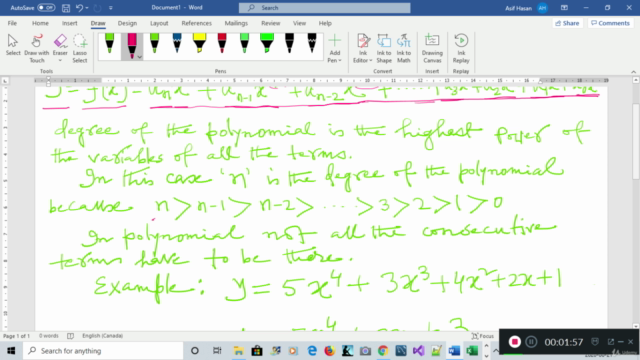 AutoSave Off Document1 - Word Search Asif Hasan AH
File Home Insert Draw Design Layout References Mailings Review View Help Share Comments
Select Draw with Touch Eraser Lasso Select Add Pen Ink Editor Ink to Shape Ink to Math Ink Replay
Tools Pens Convert Replay
y = f(x) = aₙxⁿ + aₙ₋₁x + aₙ₋₂x + .....
degree of the polynomial is the highest power of
the variables of all the terms.
In this case 'n' is the degree of the polynomial
because n > n-1 > n-2 > ..... > 3 > 2 > 1 > 0
In polynomial not all the consecutive
terms have to be there.
Example: y = 5x⁴ + 3x³ + 4x² + 2x + 1
Page 1 of 1 0 words English (Canada) Focus
Type here to search 00:01:57